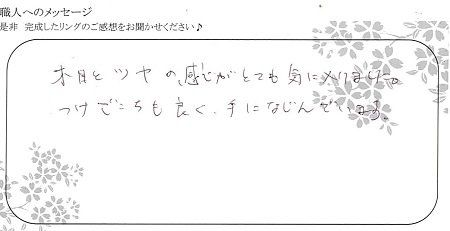 職人へのメッセージ
是非 完成したリングのご感想をお聞かせください♪
木目とツヤの感じがとても気に入りました。
つけごこちも良く、手になじんでいます。